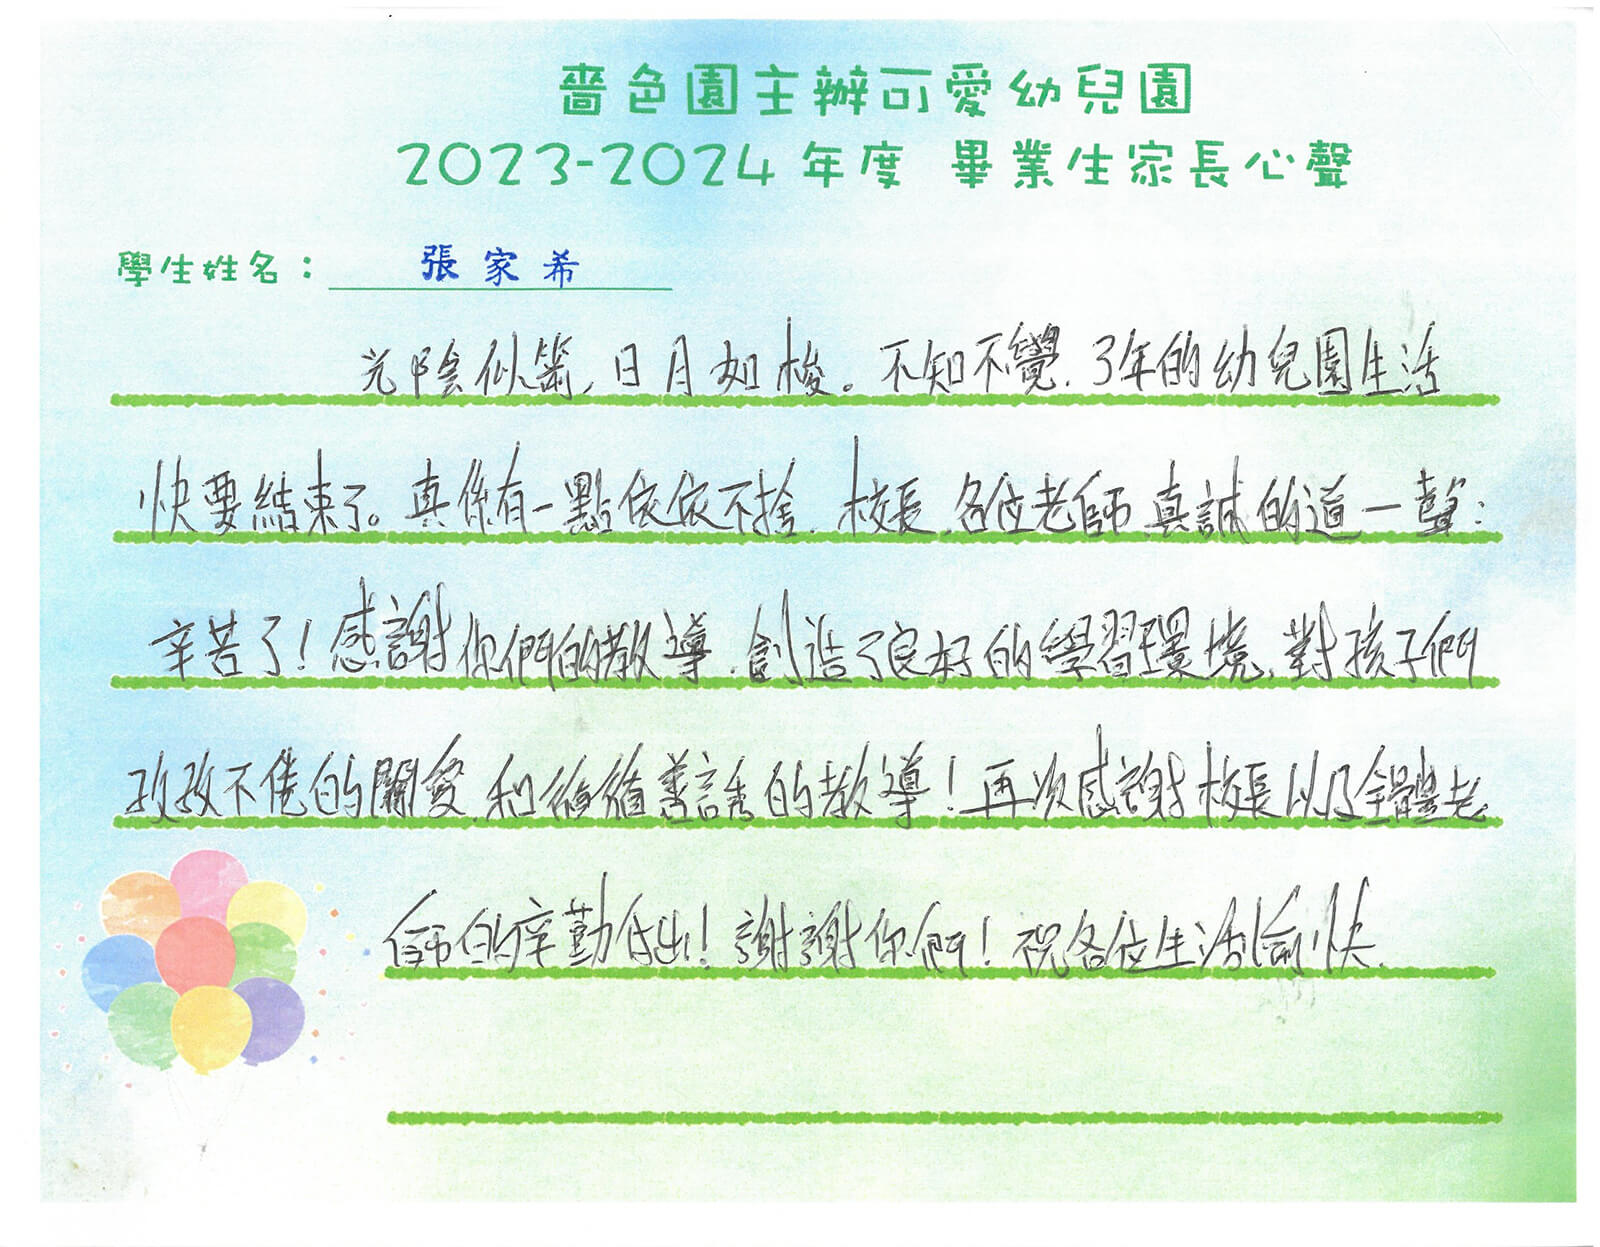 嗇色園主辦可愛幼兒園
2023-2024年度 畢業生家長心聲
學生姓名： 張家希
光陰似箭,日月如梭。不知不覺,3年的幼兒園生活
快要結束了。真係有一點依依不捨.校長,各位老師真誠的道一聲:
辛苦了!感謝你們的教導.創造了良好的學習環境,對孩子們
孜孜不倦的關愛,和循循善誘的教導!再次感謝校長以及全體老
師的辛勤付出!謝謝你們!祝各位生活愉快.